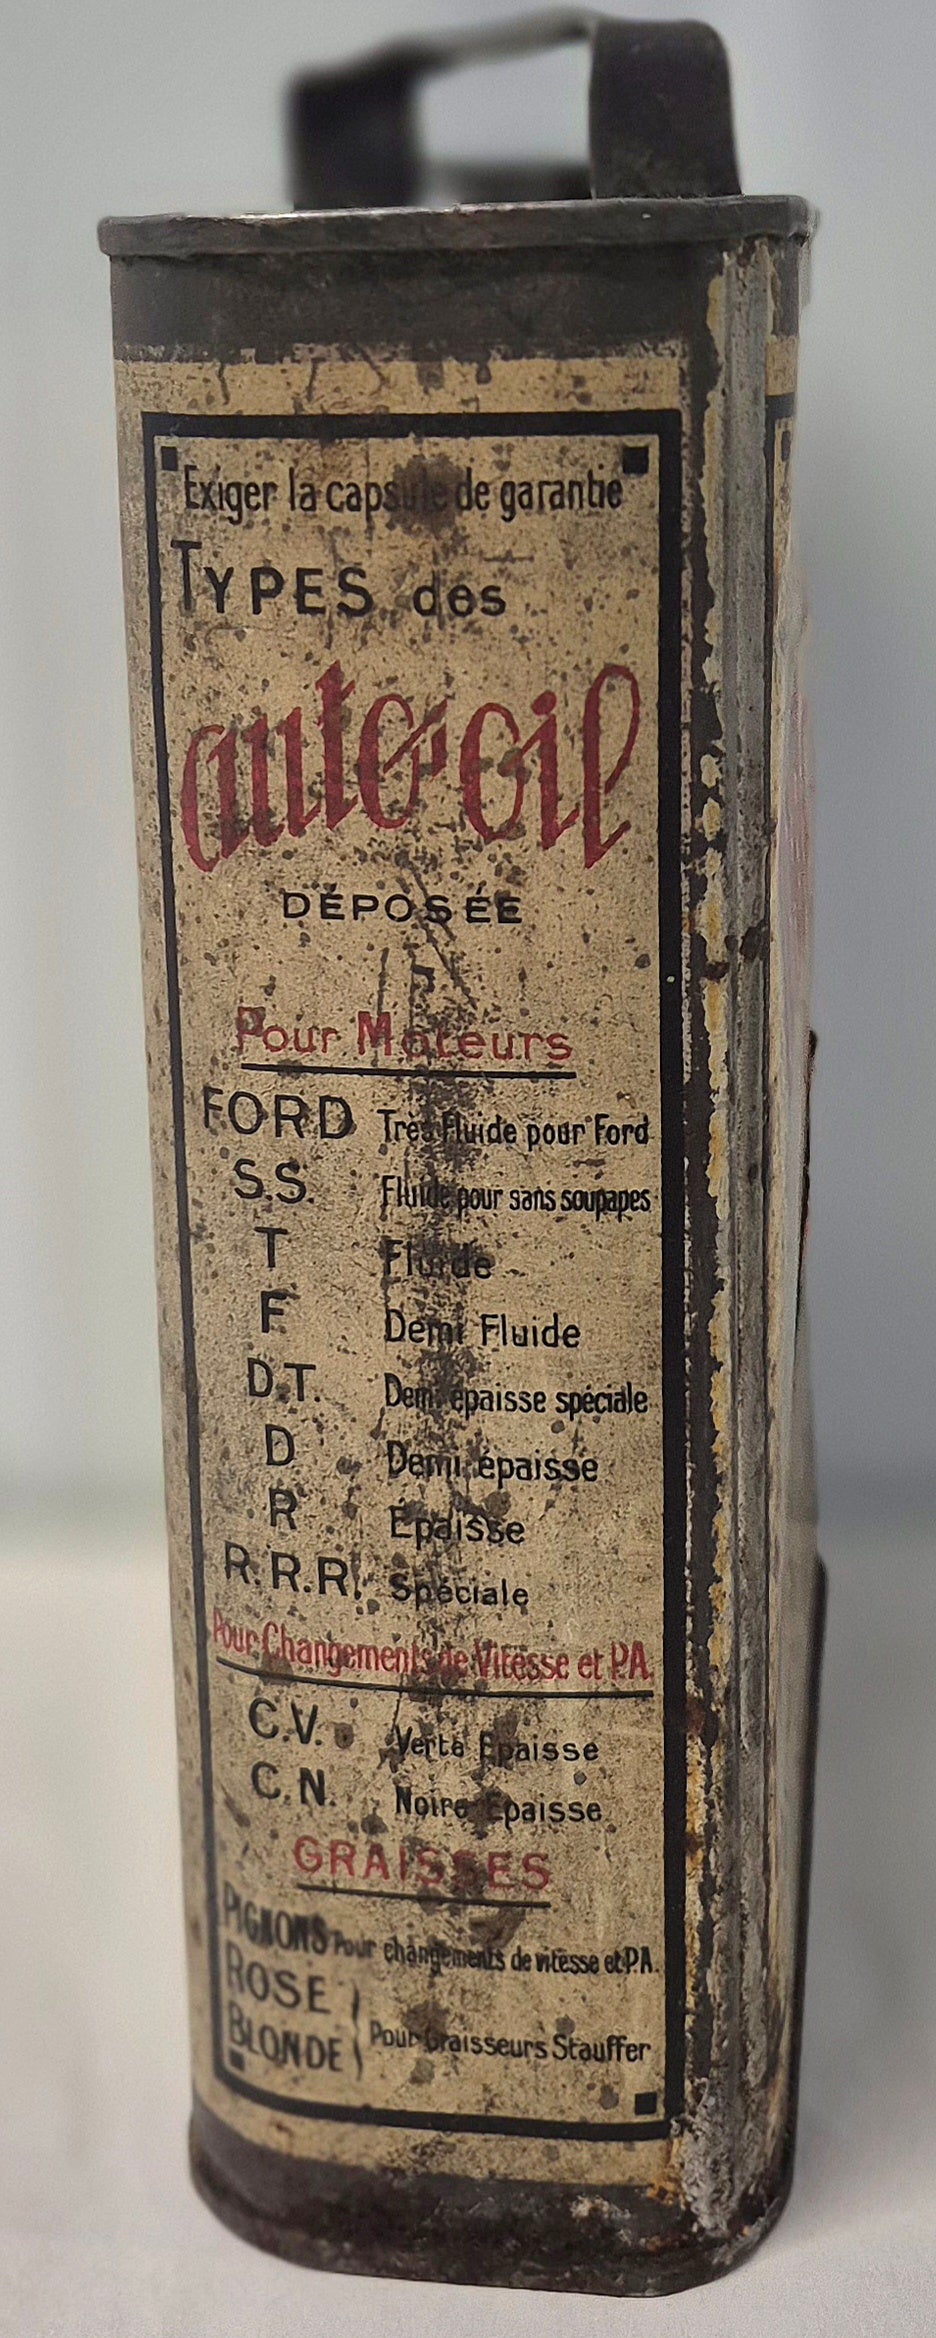 Exiger la capsule de garantie
TYPES des
auto-oil
DÉPOSÉE
Pour Moteurs
FORD Très Fluide pour Ford
S.S. Fluide pour sans soupapes
T Fluide
F Demi Fluide
D.T. Demi épaisse spéciale
D Demi épaisse
R Épaisse
R.R.R. Spéciale
Pour Changements de Vitesse et P.A.
C.V. Verte Épaisse
C.N. Noire Épaisse
GRAISSES
PIGNONS Pour changements de vitesse et P.A.
ROSE
BLONDE } Pour Graisseurs Stauffer